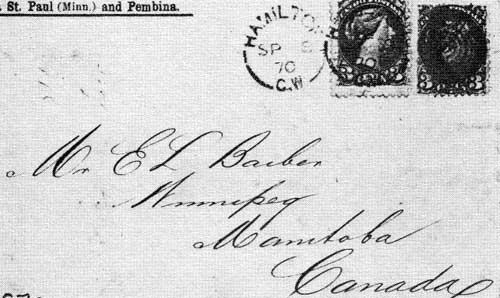 St. Paul (Minn.) and Pembina.
HAMILTON
SP
70
C.W
70
3 3
3 3
Mr E L Barber
Winnipeg
Manitoba
Canada